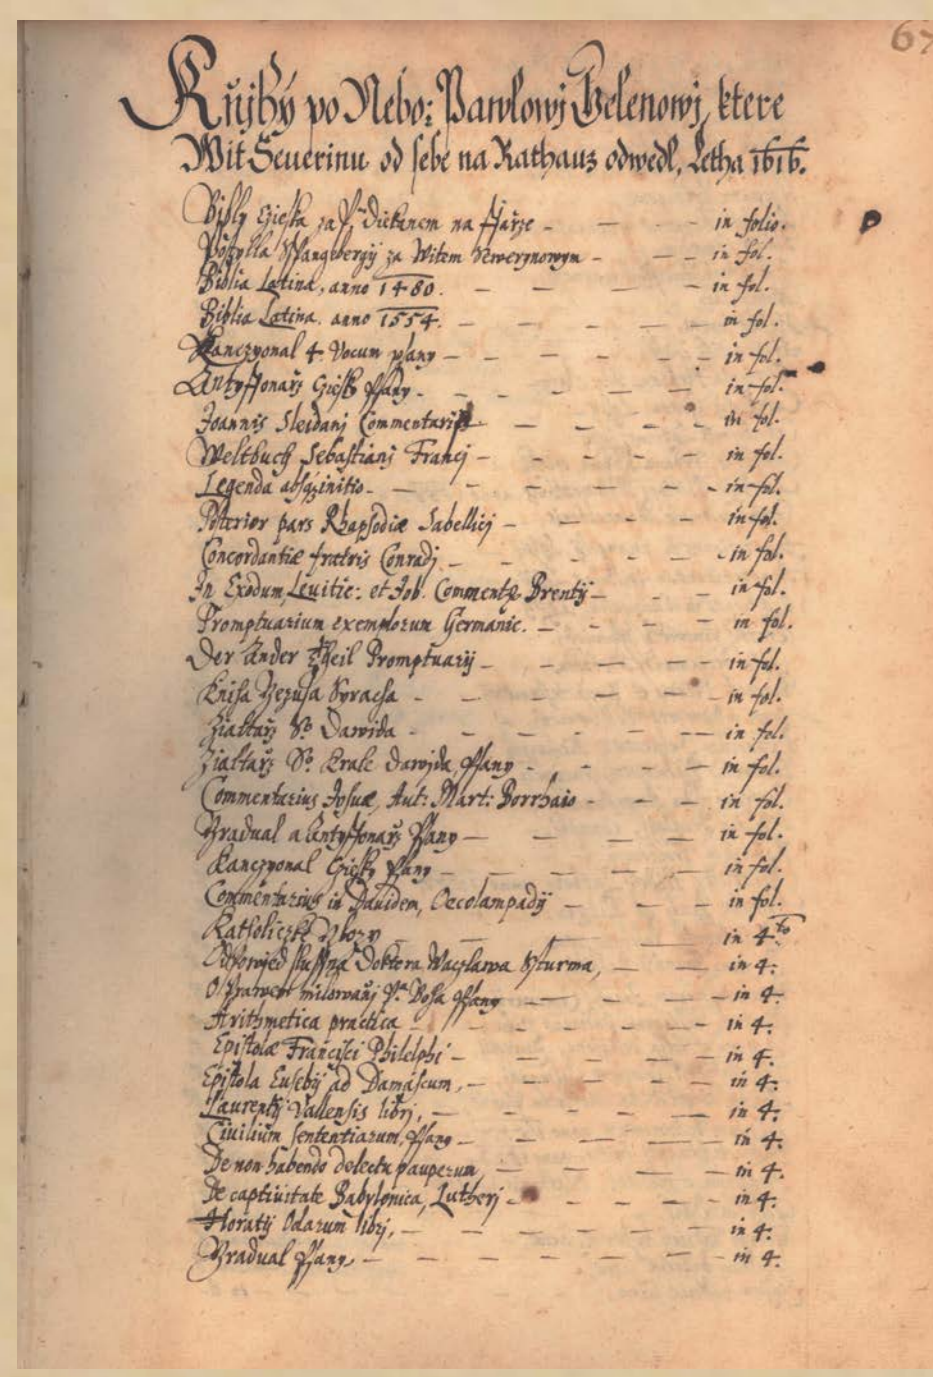 67
Knijhy po Nebo: Pawlowj Gelenowj, ktere
Wit Seuerinu od sebe na Rathauz odwedl, Letha 1616.
Bibly Czieska za Pm Diekanem na Ffarze in folio.
Postylla Spangbergij za Witem Sewerynowym in fol.
Biblia Latina, anno 1480. in fol.
Biblia Latina. anno 1554. in fol.
Kanczyonal 4 Vocum psany in fol.
Antyffonarz Czesky Psany in fol.
Joannis Sleidanj Commentarij in fol.
Weltbuch Sebastiani Francj in fol.
Legenda in fol.
Posterior pars Rhapsodiæ Sabellicj in fol.
Concordantiæ fratris Conradj in fol.
In Exodum, Leuitic: et Iob. Comment Brentij in fol.
Promptuarium exemplorum Germanic. in fol.
Der Ander Theil Promptuarij in fol.
Kniha Jezusa Syracha in fol.
Ziattarz So Dawida in fol.
Ziattarz So Krale Dawjda, Psany in fol.
Commentarius Josuæ, Aut: Mart: Borrhaio in fol.
Gradual a Antyffonarz Psany in fol.
Kanczyonal Czesky Psany in fol.
Commentarius in Dauidem, Oecolampadij in fol.
Katholiczke in 4to
Odpowied slussna Doktora Waczlawa Szturma, in 4.
O Prawem milowanj Pa Boha Psany in 4.
Arithmetica practica in 4.
Epistolæ Francisci Philelphi in 4.
Epistola Eusebij ad Damascum, in 4.
Laurentij Vallensis librj, in 4.
Ciuilium sententiarum, Psany in 4.
De non habendo delectu pauperum, in 4.
De captiuitate Babylonica, Lutherj in 4.
Horatij Odarum librj, in 4.
Gradual Psany, in 4.